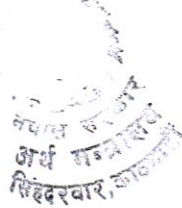 नेपाल सरकार
अर्थ मन्त्रालय
सिंहदरवार, काठमाडौं